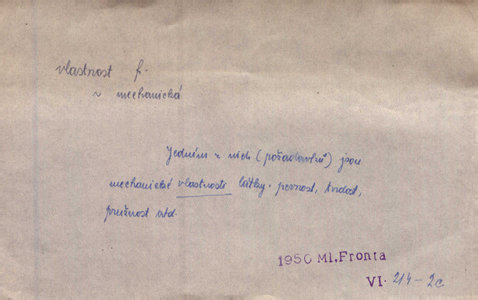 vlastnost f.
~ mechanická
Jedněmi z nich (požadavků) jsou
mechanické vlastnosti látky - pevnost, tvrdost,
pružnost atd.
1950 Ml.Fronta
VI. 214-2c